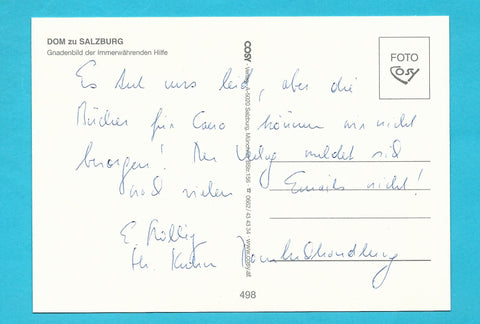 DOM zu SALZBURG
Gnadenbild der Immerwährenden Hilfe
FOTO
COSY
Es tut uns leid, aber die
Bücher für können wir nicht
besorgen! Der Verlag meldet sich
nach vielen Emails nicht!
E.
Domбuchhandlung
COSY - Verlag, A-5020 Salzburg, 0662/43 43 34 www.cosy.at
498